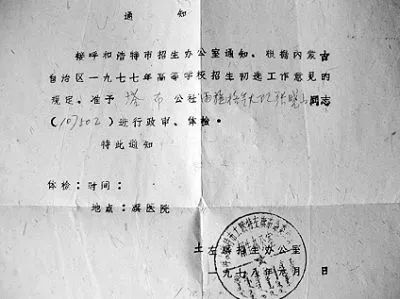 通知
接呼和浩特市招生办公室通知。根据内蒙古
自治区一九七七年高等学校招生初选工作意见的
规定。准予 塔布 公社 大队 张晓山 同志
(107502)进行政审、体检。
特此通知
体检：时间：
地点：旗医院
土左旗招生办公室
一九七 年 月 日